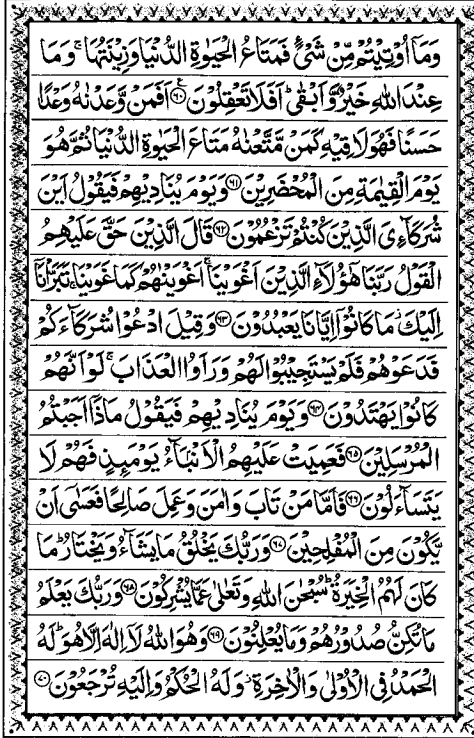 وَمَآ اُوْتِيْتُمْ مِّنْ شَيْءٍ فَمَتَاعُ الْحَيٰوةِ الدُّنْيَا وَزِيْنَتُهَا ۚ وَمَا
عِنْدَ اللّٰهِ خَيْرٌ وَّاَبْقٰى ؕ اَفَلَا تَعْقِلُوْنَ ۶۰ اَفَمَنْ وَّعَدْنٰهُ وَعْدًا
حَسَنًا فَهُوَ لَاقِيْهِ كَمَنْ مَّتَّعْنٰهُ مَتَاعَ الْحَيٰوةِ الدُّنْيَا ثُمَّ هُوَ
يَوْمَ الْقِيٰمَةِ مِنَ الْمُحْضَرِيْنَ ۶۱ وَيَوْمَ يُنَادِيْهِمْ فَيَقُوْلُ اَيْنَ
شُرَكَآءِيَ الَّذِيْنَ كُنْتُمْ تَزْعُمُوْنَ ۶۲ قَالَ الَّذِيْنَ حَقَّ عَلَيْهِمُ
الْقَوْلُ رَبَّنَا هٰٓؤُلَآءِ الَّذِيْنَ اَغْوَيْنَا ۚ اَغْوَيْنٰهُمْ كَمَا غَوَيْنَا ۚ تَبَرَّاْنَآ
اِلَيْكَ ؗ مَا كَانُوْٓا اِيَّانَا يَعْبُدُوْنَ ۶۳ وَقِيْلَ ادْعُوْا شُرَكَآءَكُمْ
فَدَعَوْهُمْ فَلَمْ يَسْتَجِيْبُوْا لَهُمْ وَرَاَوُا الْعَذَابَ ۚ لَوْ اَنَّهُمْ
كَانُوْا يَهْتَدُوْنَ ۶۴ وَيَوْمَ يُنَادِيْهِمْ فَيَقُوْلُ مَاذَآ اَجَبْتُمُ
الْمُرْسَلِيْنَ ۶۵ فَعَمِيَتْ عَلَيْهِمُ الْاَنْۢبَآءُ يَوْمَئِذٍ فَهُمْ لَا
يَتَسَآءَلُوْنَ ۶۶ فَاَمَّا مَنْ تَابَ وَاٰمَنَ وَعَمِلَ صَالِحًا فَعَسٰٓى اَنْ
يَّكُوْنَ مِنَ الْمُفْلِحِيْنَ ۶۷ وَرَبُّكَ يَخْلُقُ مَا يَشَآءُ وَيَخْتَارُ ؕ مَا
كَانَ لَهُمُ الْخِيَرَةُ ؕ سُبْحٰنَ اللّٰهِ وَتَعٰلٰى عَمَّا يُشْرِكُوْنَ ۶۸ وَرَبُّكَ يَعْلَمُ
مَا تُكِنُّ صُدُوْرُهُمْ وَمَا يُعْلِنُوْنَ ۶۹ وَهُوَ اللّٰهُ لَآ اِلٰهَ اِلَّا هُوَ ؕ لَهُ
الْحَمْدُ فِي الْاُوْلٰى وَالْاٰخِرَةِ ؗ وَلَهُ الْحُكْمُ وَاِلَيْهِ تُرْجَعُوْنَ ۷۰